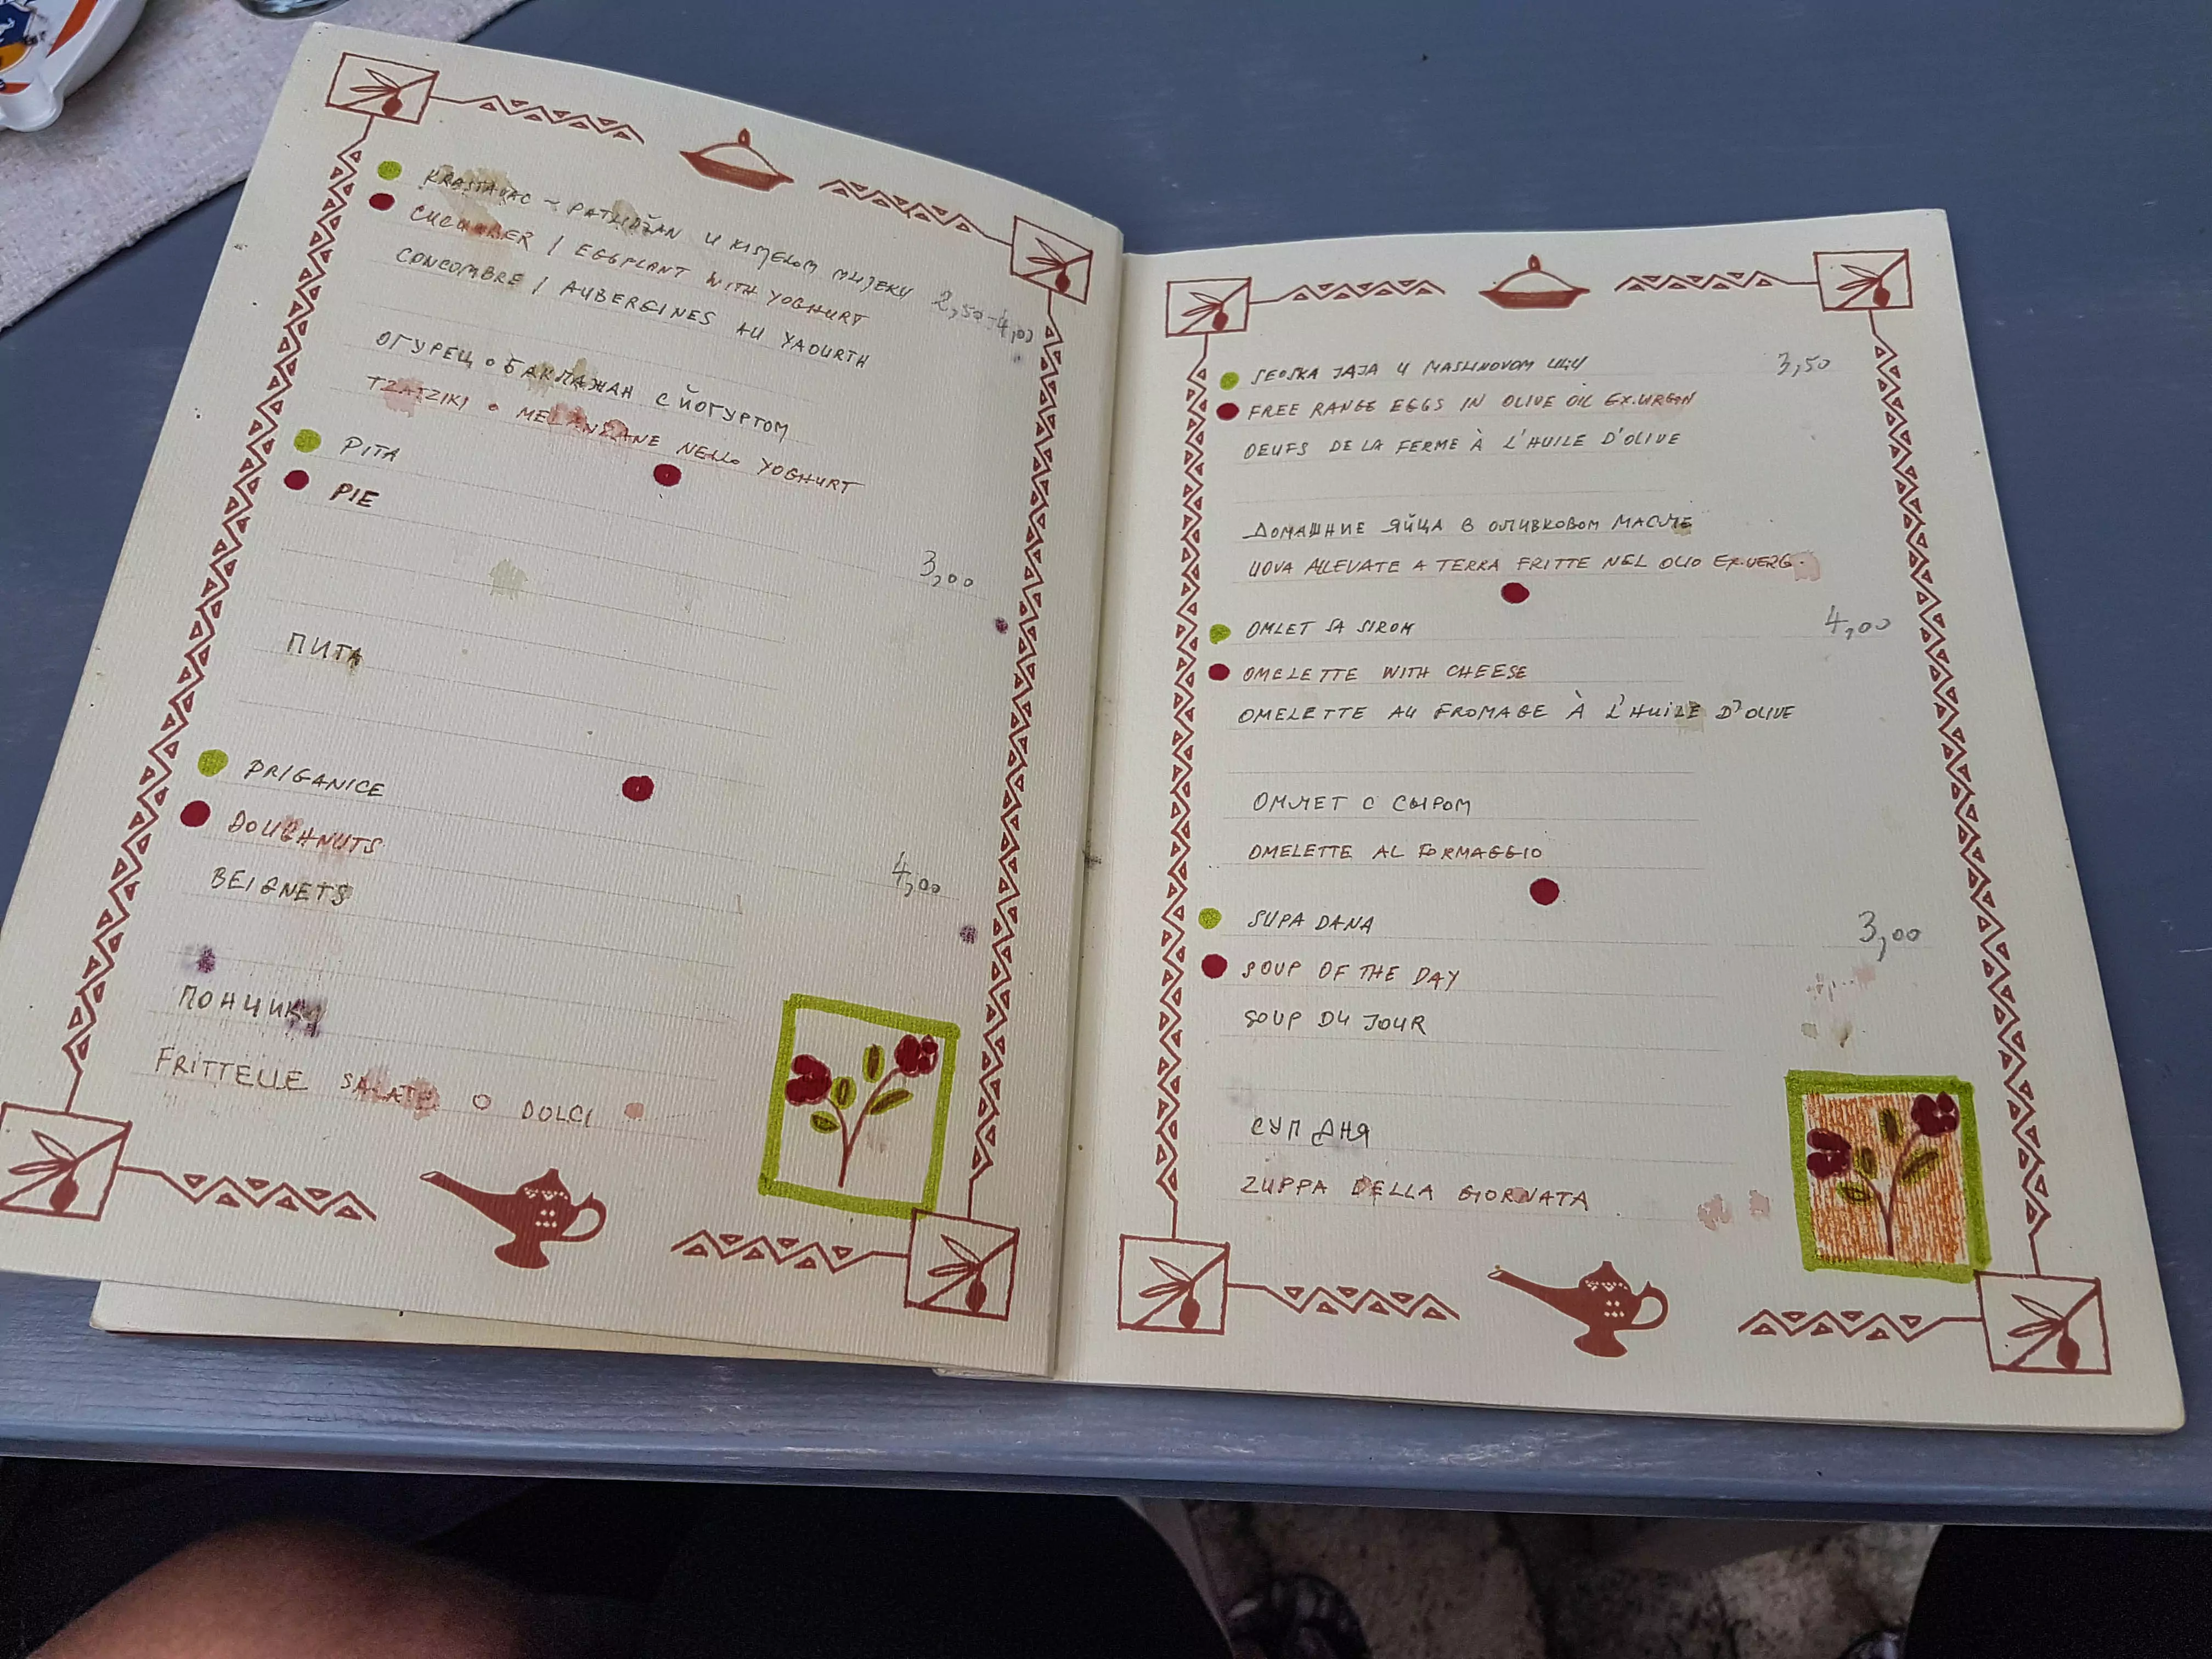 KRASTAVAC - PATLIDŽAN U KISJELOM MLIJEKU 2,50-4,00
CUCUMBER / EGGPLANT WITH YOGHURT
CONCOMBRE / AUBERGINES AU YAOURTH
ОГУРЕЦ • БАКЛАЖАН С ЙОГУРТОМ
TZATZIKI • MELANZANE NELLO YOGHURT
PITA
PIE
3,00
ПИТА
PRIGANICE
DOUGHNUTS
4,00
BEIGNETS
ПОНЧИКИ
FRITTELLE SALATE O DOLCI
SEOSKA JAJA U MASLINOVOM ULJU 3,50
FREE RANGE EGGS IN OLIVE OIL EX.VIRGIN
OEUFS DE LA FERME À L'HUILE D'OLIVE
ДОМАШНИЕ ЯЙЦА В ОЛИВКОВОМ МАСЛЕ
UOVA ALLEVATE A TERRA FRITTE NEL OLIO EX.VERG.
OMLET SA SIROM 4,00
OMELETTE WITH CHEESE
OMELETTE AU FROMAGE À L'HUILE D'OLIVE
ОМЛЕТ С СЫРОМ
OMELETTE AL FORMAGGIO
SUPA DANA 3,00
SOUP OF THE DAY
SOUP DU JOUR
СУП ДНЯ
ZUPPA DELLA GIORNATA